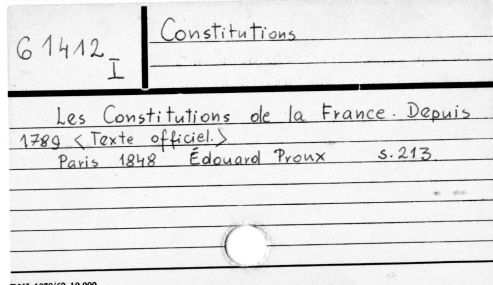 G 1412 I
Constitutions
Les Constitutions de la France. Depuis
1789 <Texte officiel.>
Paris 1848 Édouard Proux s. 213.